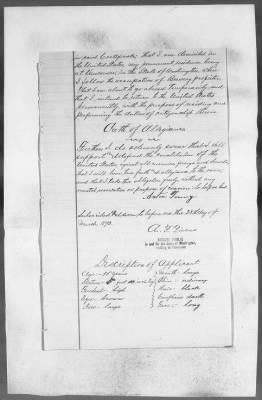 said Certificate; that I am domiciled in
the United States, my permanent residence being
at Vancouver, in the State of Washington, where
I follow the occupation of Brewery proprietor
that I am about to go abroad temporarily and
that I intend to return to the United States
permanently with the purpose of residing and
performing the duties of citizenship therein
Oath of Allegiance
Further I do solemnly swear that I will
support and defend the Constitution of the
United States against all enemies foreign and domestic
that I will bear true faith and allegiance to the same
and that I take this obligation freely without any
mental reservation or purpose of evasion So help me God
Anton Young
Subscribed and sworn to before me this 28th day of
March 1893
NOTARY PUBLIC
in and for the State of Washington,
residing at Vancouver
Description of Applicant
Age: years Mouth: large
Stature: Chin: ordinary
Forehead: high Hair: black
Eyes: brown Complexion: dark
Nose: large Face: long